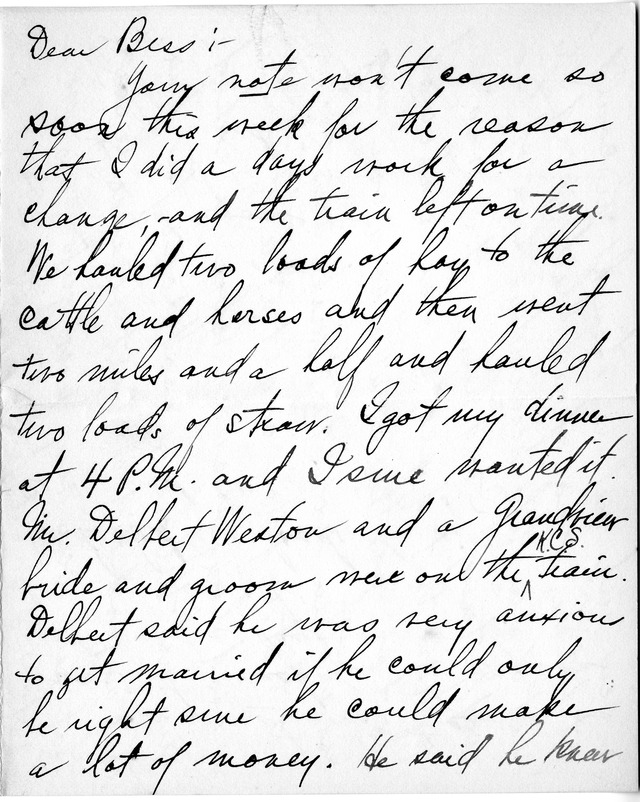 Dear Bess :-
Your note won't come so
soon this week for the reason
that I did a days work for a
change, and the train left on time.
We hauled two loads of hay to the
cattle and horses and then went
two miles and a half and hauled
two loads of straw. I got my dinner
at 4 P.M. and I sure wanted it.
Mr. Delbert Weston and a Grandview
K.C.S.
bride and groom were on the ^ train.
Delbert said he was very anxious
to get married if he could only
be right sure he could make
a lot of money. He said he knew